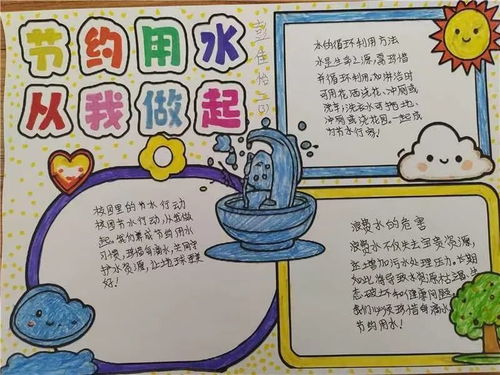 节约用水
从我做起
水的循环利用方法
水是生命之源，需珍惜
并循环利用。如淋浴时
可用花洒浇花、冲厕或
洗车；洗衣水可拖地、
冲厕或浇花园。一起成
为节水行家！
校园里的节水行动
校园节水行动，从我做
起。我们养成节约用水
习惯，珍惜每滴水，共同守
护水资源，让地球更美
好！
浪费水的危害
浪费水不仅失去宝贵资源，
还增加污水处理压力。长期
如此将导致水资源枯竭、生
态破坏和健康问题。
我们必须珍惜每滴水，
节约用水！